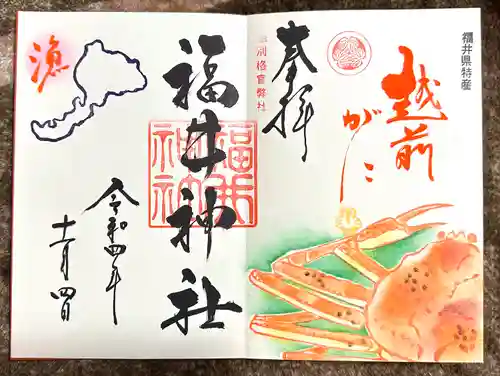 福井県特産
越前
がに
奉拝
別格官幣社
福井神社
福井
神社
令和四年
十一月四日
漁